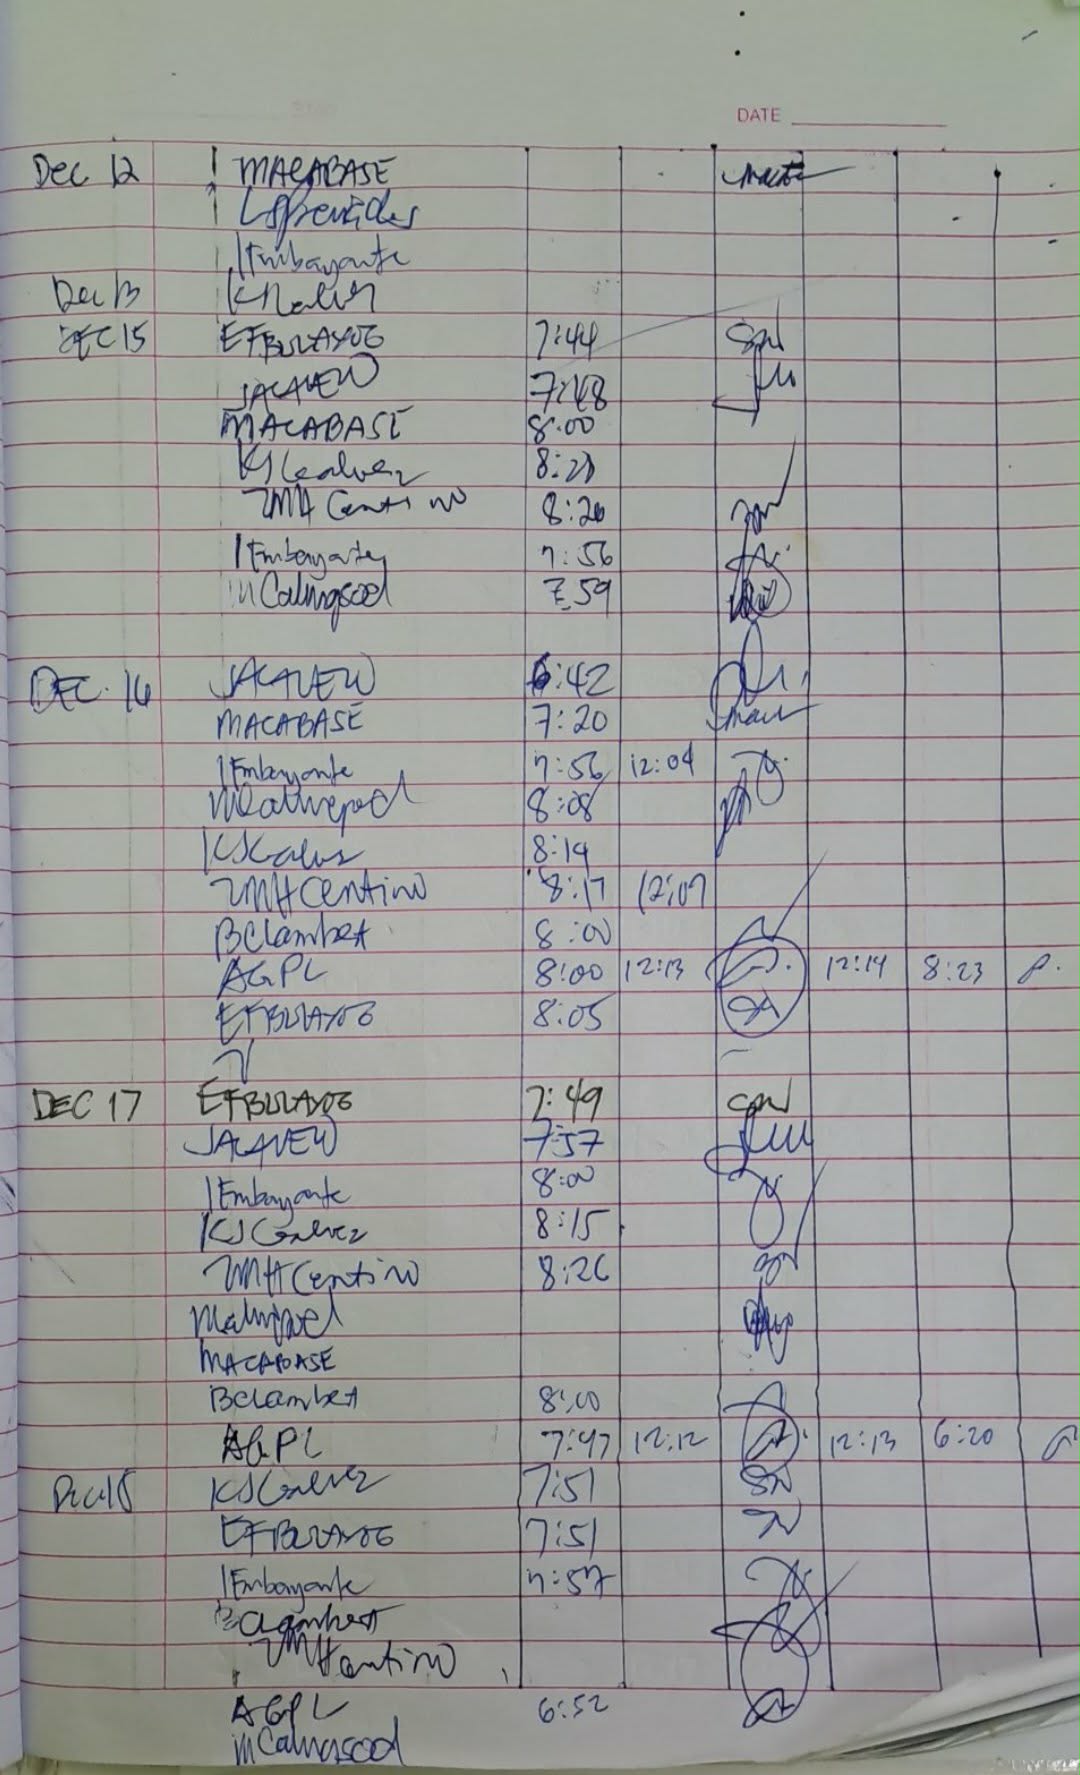 DATE
Dec 12 MACABASE
1Embayante
Dec 13
DEC 15 EFBULAYOG 7:44
JACAVEW 7:48
MACABASE 8:00
KSGalvez
ZMHCentino 8:26
1Embayante 7:56
mCalingsod 7:59
DEC. 16 JACAVEW 6:42
MACABASE 7:20
1Embayante 7:56 12:04
8:08
KSGalvez 8:14
ZMHCentino 8:17 12:07
BClambert 8:00
AGPL 8:00 12:13 12:14 8:23
EFBULAYOG 8:05
DEC 17 EFBULAYOG 7:49
JACAVEW 7:57
1Embayante 8:00
KSGalvez 8:15
ZMHCentino 8:26
MACABASE
BClambert 8:00
AGPL 7:47 12:12 12:13 6:20
Dec 18 KSGalvez 7:51
EFBULAYOG 7:51
1Embayante 7:57
BClambert
ZMHCentino
AGPL 6:52
mCalingsod